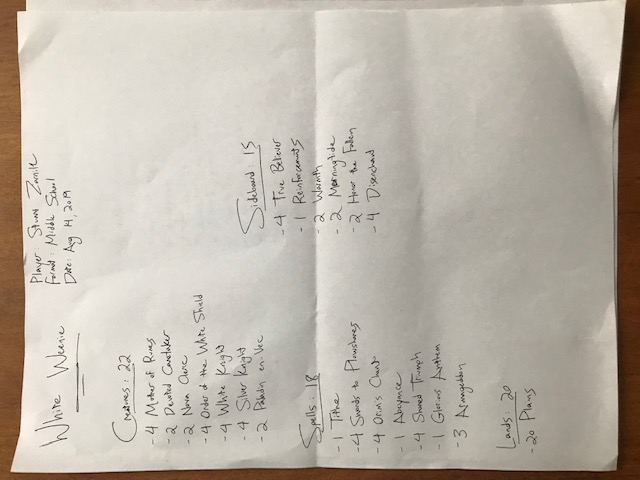 White Weenie
Player: Stuart Zarnik
Format: Middle School
Date: Aug 14, 2019
Creatures: 22
- 4 Mother of Runes
- 2 Devoted Caretaker
- 2 Nova Cleric
- 4 Order of the White Shield
- 4 White Knight
- 4 Silver Knight
- 2 Paladin en-Vec
Spells: 18
- 1 Tithe
- 4 Swords to Plowshares
- 4 Orim's Chant
- 1 Abeyance
- 4 Shared Triumph
- 1 Glorious Anthem
- 3 Armageddon
Lands: 20
- 20 Plains
Sideboard: 15
- 4 True Believer
- 1 Reinforcements
- 2 Warmth
- 2 Morningtide
- 2 Honor the Fallen
- 4 Disenchant